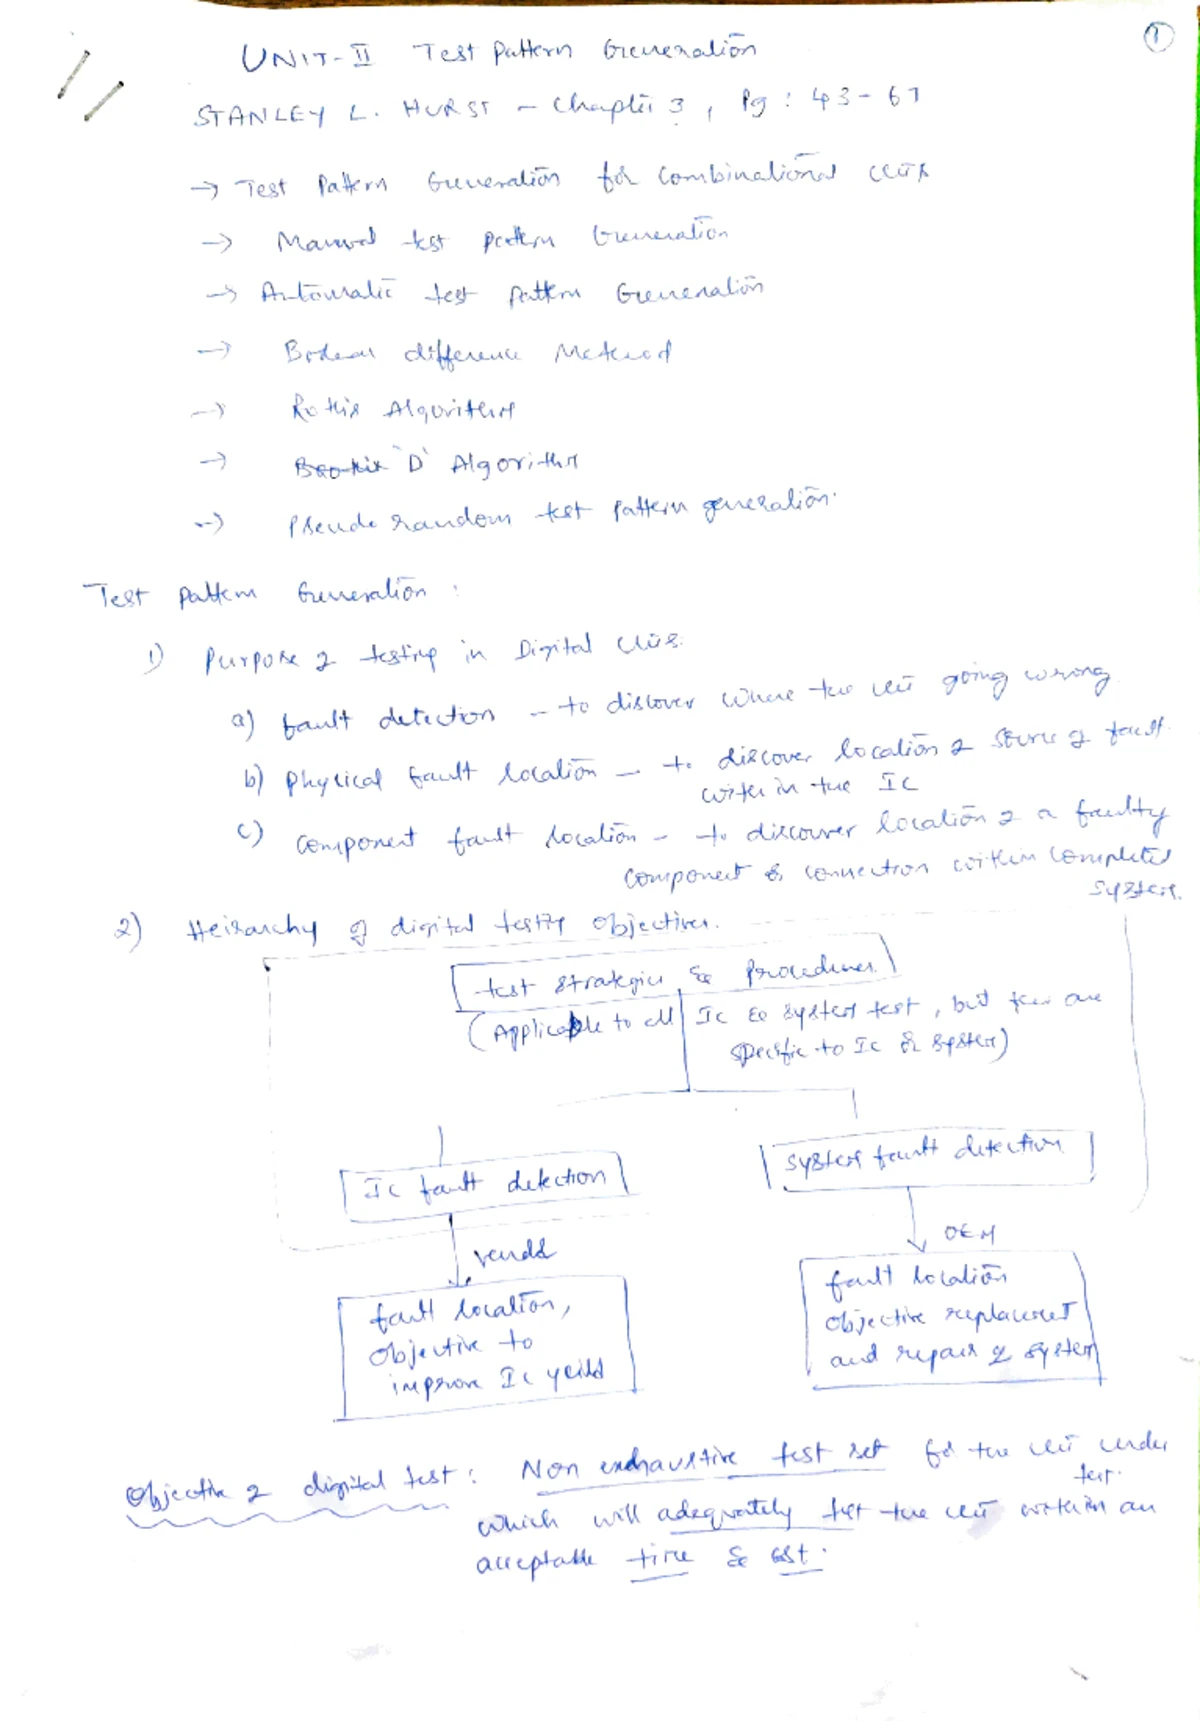 1
UNIT-II Test Pattern Generation
STANLEY L. HURST - Chapter 3, Pg: 43-67
→ Test Pattern Generation for Combinational
→ Manual test pattern Generation
→ Automatic test pattern Generation
→ Boolean difference Method
→ Roth's Algorithm
→ 'D' Algorithm
→ Pseudo random test pattern generation.
Test pattern Generation :
1) Purpose of testing in Digital
a) fault detection - to discover where the ckt going wrong
b) Physical fault location - to discover location & source of fault
within the IC
c) Component fault location - to discover location of a faulty
component or connection within complete
system.
2) Heirarchy of digital testing objectives.
test strategies & procedures
(Applicable to all IC & system test, but few are
specific to IC or system)
IC fault detection
system fault detection
vendor
OEM
fault location,
objective to
improve IC yeild
fault location
objective replacement
and repair of system
Objective of digital test : Non exhaustive test set for the ckt under
test.
which will adequately test the ckt within an
acceptable time & cost.